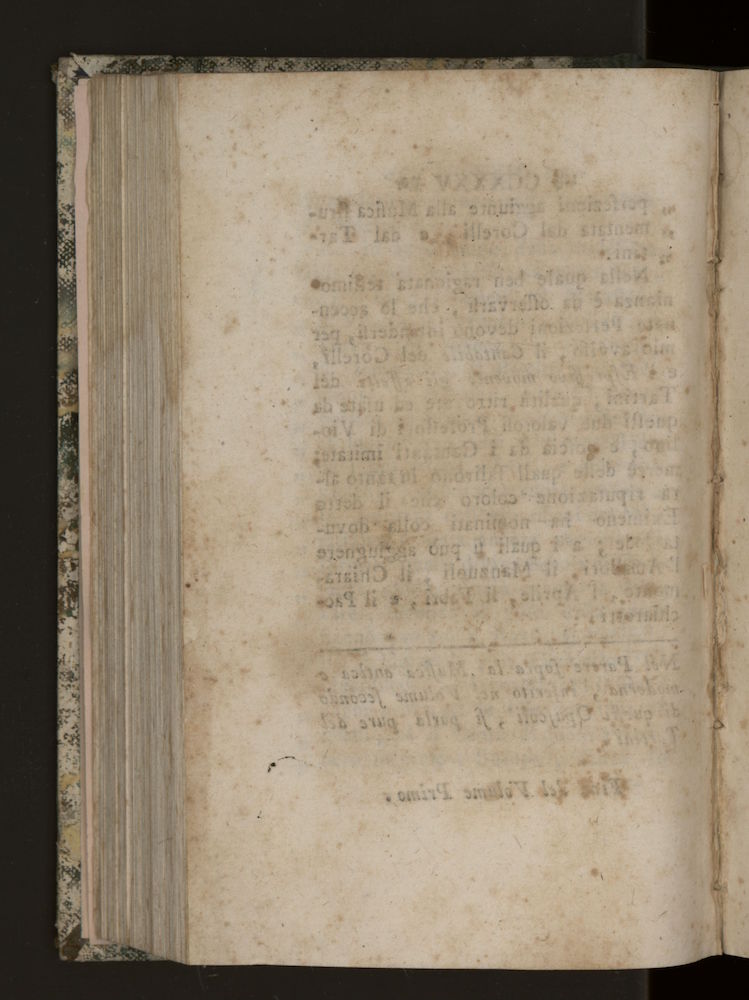 CCXXXV
„ perfezioni aggiunte alla Musica stru-
„ mentata dal Corelli, e dal Tar-
„ tini.
Nella quale ben ragionata testimo-
nianza è da osservarsi, che le accen-
nate Perfezioni devono intendersi, per
mio avviso, il Cantabile del Corelli,
e l' Espressivo movente gli affetti del
Tartini, qualità ritrovate ed usate da
questi due valorosi Professori di Vio-
lino, e poscia da i Cantanti imitate;
mercè delle quali salirono in tanto al-
ta riputazione coloro che il detto
Eximeno ha nominati colla dovu-
ta lode; a i quali si può aggiugnere
l' Amadori, il Manzuoli, il Chiara-
monte, l' Aprile, il Fabri, e il Pac-
chiarotti.
Nel Parere sopra la Musica antica e
moderna, inserito nel Volume secondo
di questi Opuscoli, si parla pure del
Tartini.
Fine del Volume Primo.